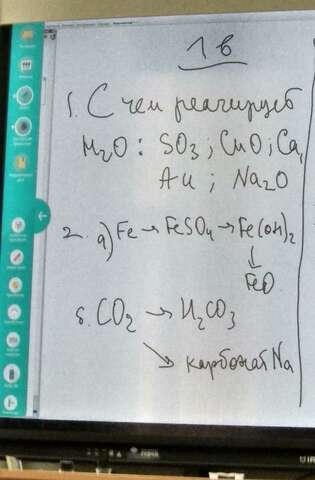 1 в
1. С чем реагирует
H2O: SO3; CuO; Ca,
Au; Na2O
2. а) Fe → FeSO4 → Fe(OH)2
↓
FeO
б. CO2 → H2CO3
↘ карбонат Na